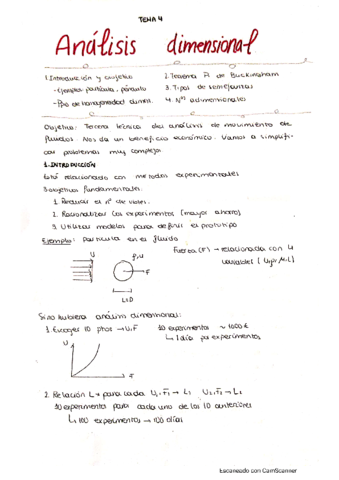 TEMA 4
Análisis dimensional
1. Introducción y objetivo
- Ejemplos partícula, péndulo
- Ppio de homogeneidad dimen.
2. Teorema Pi de Buckingham
3. Tipos de semejanzas
4. Nos adimensionales
Objetivo: Tercera técnica del análisis de movimiento de
fluidos. Nos da un beneficio económico. Vamos a simplifi-
car problemas muy complejos.
1. INTRODUCCIÓN
Está relacionado con métodos experimentales
3 objetivos fundamentales:
1. Reducir el nº de vbles.
2. Racionalizar los experimentos (mayor ahorro)
3. Utilizar modelos para definir el prototipo
Ejemplo: partícula en el fluido
Fuerza (F) → relacionada con 4
variables (U, ρ, μ, L)
U
ρ, μ
F
L=D
Si no hubiera análisis dimensional:
1. Escoger 10 ptos → U, F 10 experimentos ~ 1000 €
↳ 1 día por experimento
U
F
2. Relación L → para cada U1, F1 → L1 U2, F2 → L2
10 experimentos para cada uno de los 10 anteriores
↳ 100 experimentos → 100 días
Escaneado con CamScanner